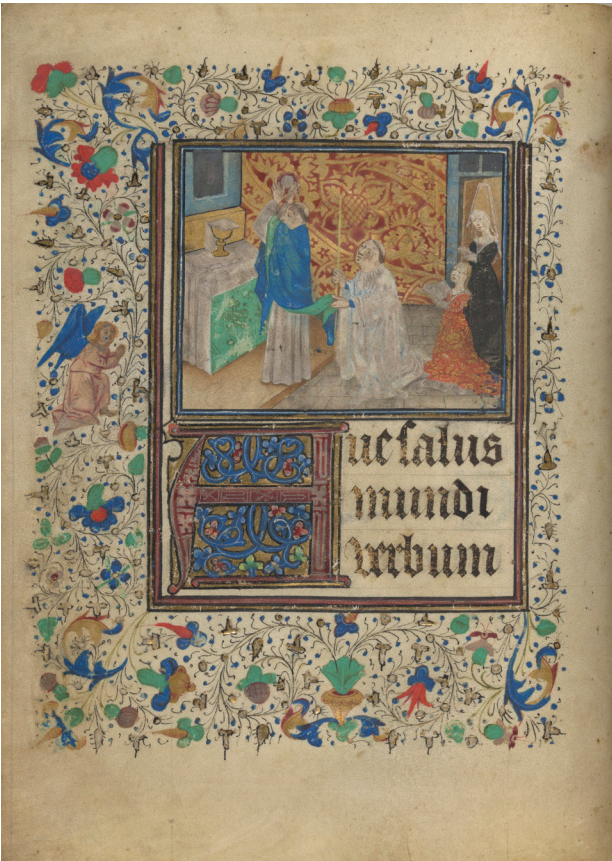 Aue salus
mundi
verbum